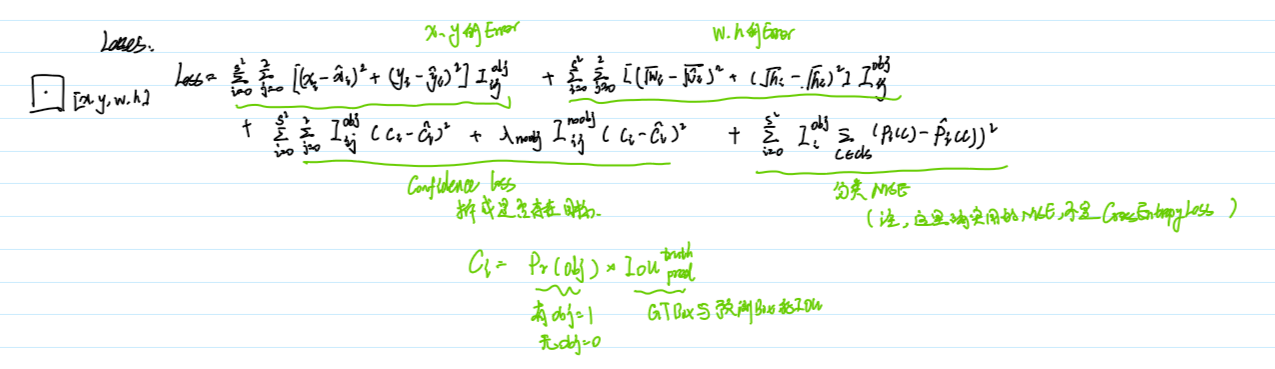 x. y的Error
w. h的Error
Losses.
[x y, w. h]
Loss = Σ_{i=0}^{S²} Σ_{j=0}^{2} [(x_i - x̂_i)² + (y_i - ŷ_i)²] I_{ij}^{obj} + Σ_{i=0}^{S²} Σ_{j=0}^{2} [(√w_i - √ŵ_i)² + (√h_i - √ĥ_i)²] I_{ij}^{obj}
+ Σ_{i=0}^{S²} Σ_{j=0}^{2} I_{ij}^{obj} (C_i - Ĉ_i)² + λ_{noobj} I_{ij}^{noobj} (C_i - Ĉ_i)² + Σ_{i=0}^{S²} I_i^{obj} Σ_{c∈cls} (P_i(c) - P̂_i(c))²
Confidence loss
拆成是否存在
分类 MSE
(注, 这里确实用的MSE, 不是 CrossEntropyLoss )
C_i = Pr(obj) * IOU_{pred}^{truth}
有obj=1
GTBox与预测Box的IOU
无obj=0